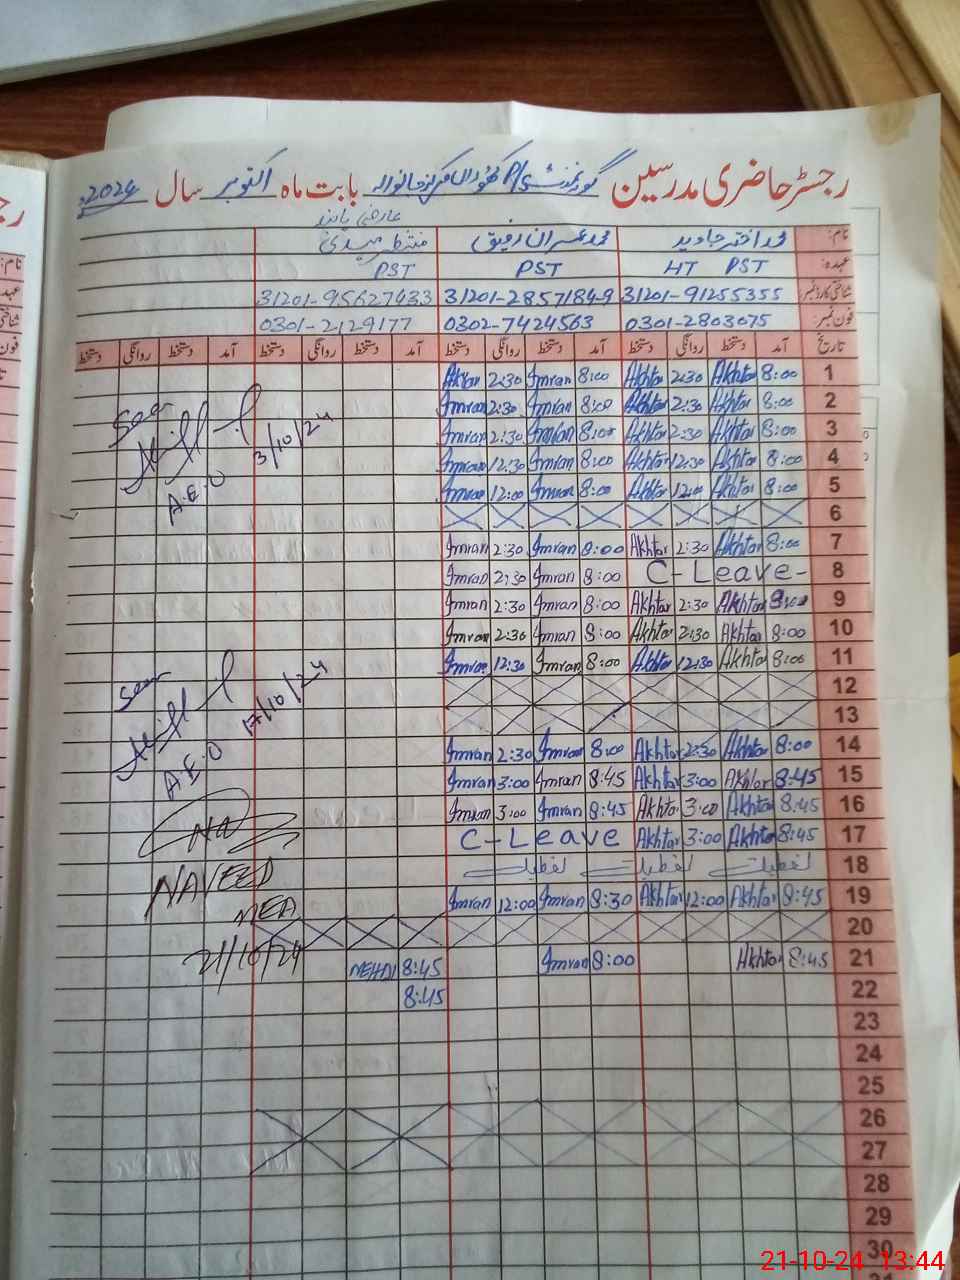 رجسٹر حاضری مدرسین گورنمنٹ بابت ماہ اکتوبر سال 2024
عارضی
نام: محمد اختر جاوید محمد عمران رفیق منتظر مہدی
عہدہ: HT PST PST PST
شناختی کارڈ نمبر: 31201-91255355 31201-2857184-9 31201-95627433
فون نمبر: 0301-2803075 0302-7424563 0301-2129177
تاریخ آمد دستخط روانگی دستخط آمد دستخط روانگی دستخط آمد دستخط روانگی دستخط آمد دستخط روانگی دستخط
1 8:00 Akhtar 2:30 Akhtar 8:00 Imran 2:30
2 8:00 Akhtar 2:30 Akhtar 8:00 Imran 2:30 Imran
3 8:00 Akhtar 2:30 Akhtar 8:00 Imran 2:30 Imran
4 8:00 Akhtar 12:30 Akhtar 8:00 Imran 12:30 Imran
5 8:00 Akhtar 12:00 Akhtar 8:00 Imran 12:00 Imran
6
7 8:00 Akhtar 2:30 Akhtar 8:00 Imran 2:30 Imran
8 C-Leave- 8:00 Imran 2:30 Imran
9 8:00 Akhtar 2:30 Akhtar 8:00 Imran 2:30 Imran
10 8:00 Akhtar 2:30 Akhtar 8:00 Imran 2:30 Imran
11 8:00 Akhtar 12:30 Akhtar 8:00 Imran 12:30 Imran
12
13
14 8:00 Akhtar 2:30 Akhtar 8:00 Imran 2:30 Imran
15 8:45 Akhtar 3:00 Akhtar 8:45 Imran 3:00 Imran
16 8:45 Akhtar 3:00 Akhtar 8:45 Imran 3:00 Imran
17 8:45 Akhtar 3:00 Akhtar C-Leave
18 تعطیلات تعطیلات تعطیلات
19 8:45 Akhtar 12:00 Akhtar 8:30 Imran 12:00 Imran
20
21 8:45 Akhtar 8:00 Imran 8:45 MEHDI
22 8:45
23
24
25
26
27
28
29
30
Seen
A.E.O 3/10/24
Seen
A.E.O 17/10/24
NAVEED
MEA
21/10/24
21-10-24 13:44